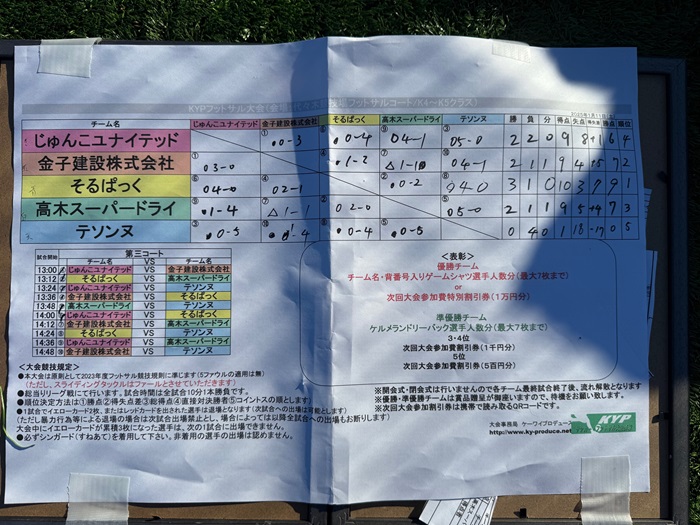 KYPフットサル大会
チーム名 じゅんこユナイテッド 金子建設株式会社 そるぱっく 高木スーパードライ テソンヌ 勝 負 分 得点 失点 得失差 勝点 順位
じゅんこユナイテッド ①●0-3 ●0-4 ○4-1 ③○5-0 2 2 0 9 8 +1 6 4
金子建設株式会社 ①○3-0 ●1-2 ⑦△1-1 ⑩○4-1 2 1 1 9 4 +5 7 2
そるぱっく ⑥○4-0 ④○2-1 ②●0-2 ⑧○4-0 3 1 0 10 3 +7 9 1
高木スーパードライ ⑨●1-4 ⑦△1-1 ②○2-0 ⑤○5-0 2 1 1 9 5 +4 7 3
テソンヌ ③●0-5 ⑩●1-4 ⑧●0-4 ⑤●0-5 0 4 0 1 18 -17 0 5
第三コート
試合開始 チーム名 VS チーム名
13:00 じゅんこユナイテッド VS 金子建設株式会社
13:12 そるぱっく VS 高木スーパードライ
13:24 じゅんこユナイテッド VS テソンヌ
13:36 金子建設株式会社 VS そるぱっく
13:48 高木スーパードライ VS テソンヌ
14:00 じゅんこユナイテッド VS そるぱっく
14:12 金子建設株式会社 VS 高木スーパードライ
14:24 そるぱっく VS テソンヌ
14:36 じゅんこユナイテッド VS 高木スーパードライ
14:48 金子建設株式会社 VS テソンヌ
<表彰>
優勝チーム
チーム名・背番号入りゲームシャツ選手人数分(最大7枚まで)
or
次回大会参加費特別割引券(1万円分)
準優勝チーム
ケルメランドリーバック選手人数分(最大7枚まで)
3・4位
次回大会参加費割引券(1千円分)
5位
次回大会参加費割引券(5百円分)
<大会競技規定>
●本大会は原則として2023年度フットサル競技規則に準じます(5ファウルの適用は無)
(ただし、スライディングタックルはファールとさせていただきます)
●総当りリーグ戦にて行います。試合時間は全試合10分1本勝負です。
●順位決定方法は①勝点②得失点差③総得点④直接対決勝者⑤コイントスの順とします。
●1試合でイエローカード2枚、またはレッドカードを出された選手は退場となります(次試合への出場は可能とします)
(ただし暴力行為等による退場の場合は次試合出場禁止とし、場合によっては以降全試合への出場もお断りします)
大会中にイエローカードが累積3枚になった選手は、次の1試合に出場できません。
●必ずシンガード(すねあて)を着用して下さい。非着用の選手の出場は認めません。
※開会式・閉会式は行いませんので各チーム最終試合終了後、流れ解散となります
※優勝・準優勝チームは賞品贈呈が御座いますので、待機をお願い致します。
※次回大会参加割引券は携帯で読み取るQRコードです。
大会事務局 ケーワイプロデュース
http://www.ky-produce.net
KYP